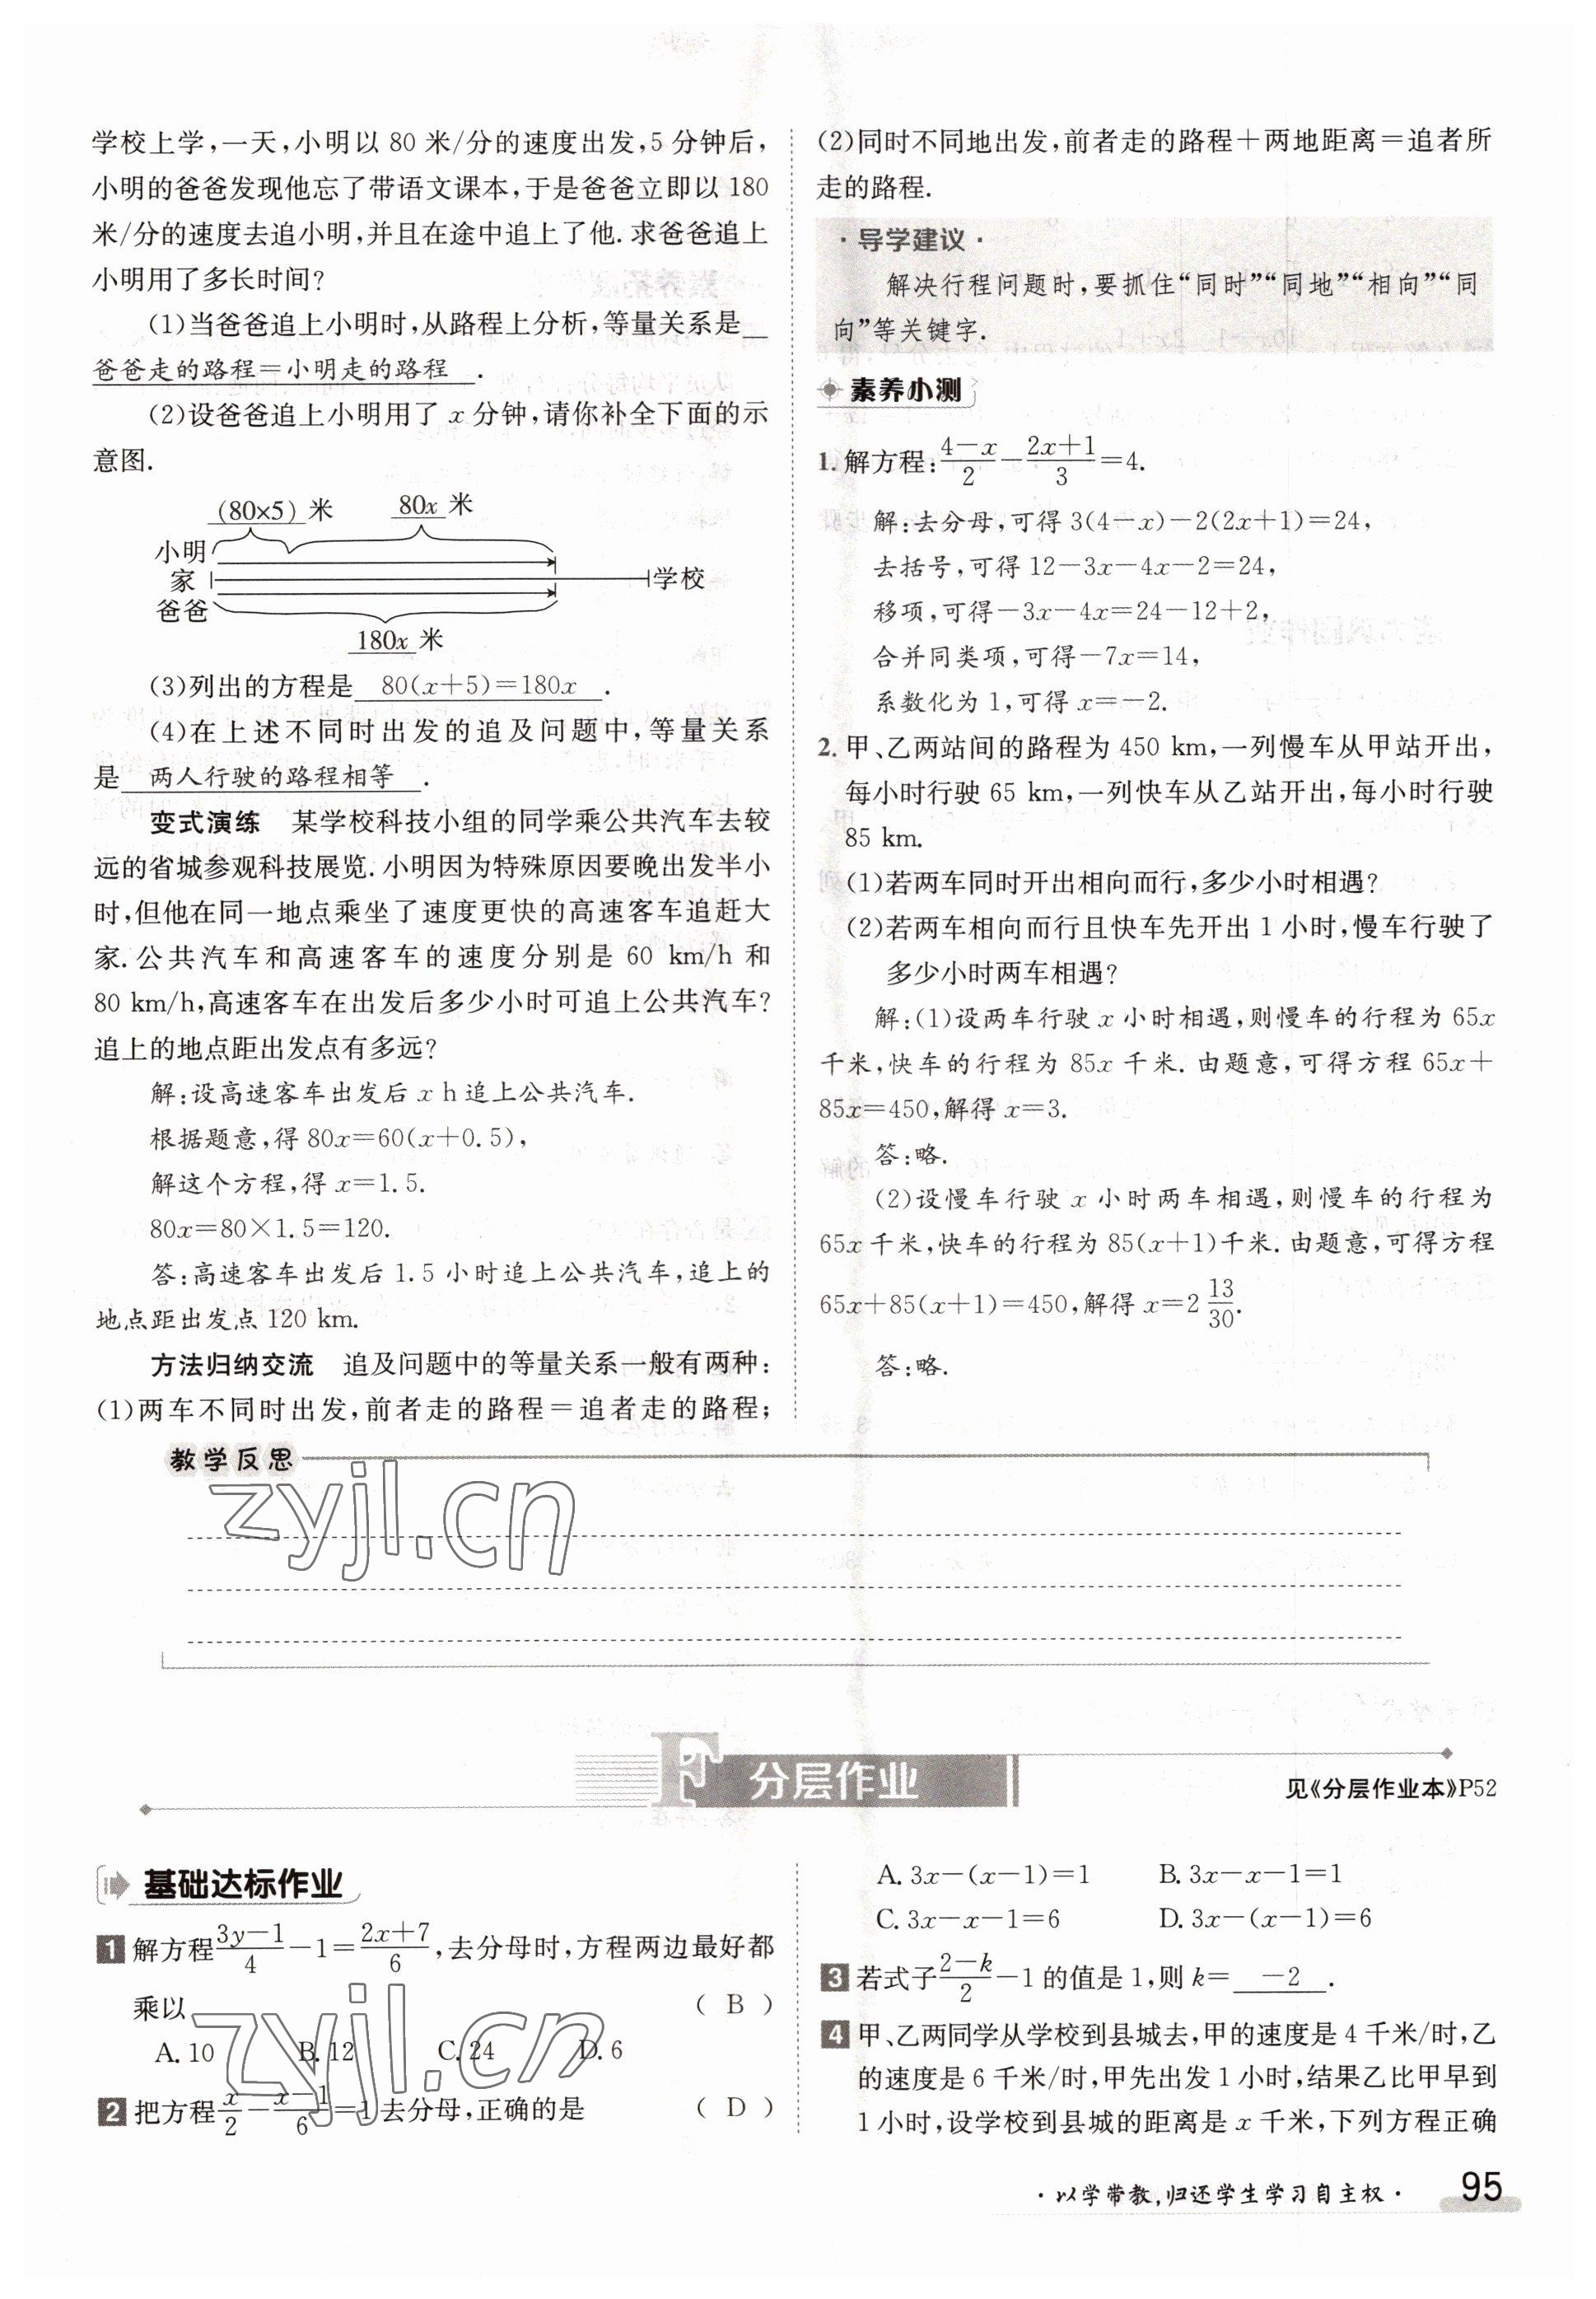 学校上学,一天,小明以 80 米/分的速度出发,5 分钟后,
小明的爸爸发现他忘了带语文课本,于是爸爸立即以 180
米/分的速度去追小明,并且在途中追上了他.求爸爸追上
小明用了多长时间?
(1)当爸爸追上小明时,从路程上分析,等量关系是
爸爸走的路程=小明走的路程 .
(2)设爸爸追上小明用了 x 分钟,请你补全下面的示
意图.
(80×5) 米 80x 米
小明
家 学校
爸爸
180x 米
(3)列出的方程是 80(x+5)=180x .
(4)在上述不同时出发的追及问题中,等量关系
是 两人行驶的路程相等 .
变式演练 某学校科技小组的同学乘公共汽车去较
远的省城参观科技展览.小明因为特殊原因要晚出发半小
时,但他在同一地点乘坐了速度更快的高速客车追赶大
家.公共汽车和高速客车的速度分别是 60 km/h 和
80 km/h,高速客车在出发后多少小时可追上公共汽车?
追上的地点距出发点有多远?
解:设高速客车出发后 x h 追上公共汽车.
根据题意,得 80x=60(x+0.5),
解这个方程,得 x=1.5.
80x=80×1.5=120.
答:高速客车出发后 1.5 小时追上公共汽车,追上的
地点距出发点 120 km.
方法归纳交流 追及问题中的等量关系一般有两种:
(1)两车不同时出发,前者走的路程=追者走的路程;
(2)同时不同地出发,前者走的路程+两地距离=追者所
走的路程.
·导学建议·
解决行程问题时,要抓住“同时”“同地”“相向”“同
向”等关键字.
素养小测
1. 解方程:\frac{4-x}{2}-\frac{2x+1}{3}=4.
解:去分母,可得 3(4-x)-2(2x+1)=24,
去括号,可得 12-3x-4x-2=24,
移项,可得-3x-4x=24-12+2,
合并同类项,可得-7x=14,
系数化为 1,可得 x=-2.
2. 甲、乙两站间的路程为 450 km,一列慢车从甲站开出,
每小时行驶 65 km,一列快车从乙站开出,每小时行驶
85 km.
(1)若两车同时开出相向而行,多少小时相遇?
(2)若两车相向而行且快车先开出 1 小时,慢车行驶了
多少小时两车相遇?
解:(1)设两车行驶 x 小时相遇,则慢车的行程为 65x
千米,快车的行程为 85x 千米.由题意,可得方程 65x+
85x=450,解得 x=3.
答:略.
(2)设慢车行驶 x 小时两车相遇,则慢车的行程为
65x 千米,快车的行程为 85(x+1)千米.由题意,可得方程
65x+85(x+1)=450,解得 x=2\frac{13}{30}.
答:略.
教学反思
zyjl.cn
F 分层作业
见《分层作业本》P52
基础达标作业
1 解方程\frac{3y-1}{4}-1=\frac{2x+7}{6},去分母时,方程两边最好都
乘以 ( B )
A. 10 B. 12 C. 24 D. 6
zyjl.cn
2 把方程\frac{x}{2}-\frac{x-1}{6}=1去分母,正确的是 ( D )
A. 3x-(x-1)=1 B. 3x-x-1=1
C. 3x-x-1=6 D. 3x-(x-1)=6
3 若式子\frac{2-k}{2}-1 的值是 1,则 k= -2 .
4 甲、乙两同学从学校到县城去,甲的速度是 4 千米/时,乙
的速度是 6 千米/时,甲先出发 1 小时,结果乙比甲早到
1 小时,设学校到县城的距离是 x 千米,下列方程正确
·以学带教,归还学生学习自主权· 95